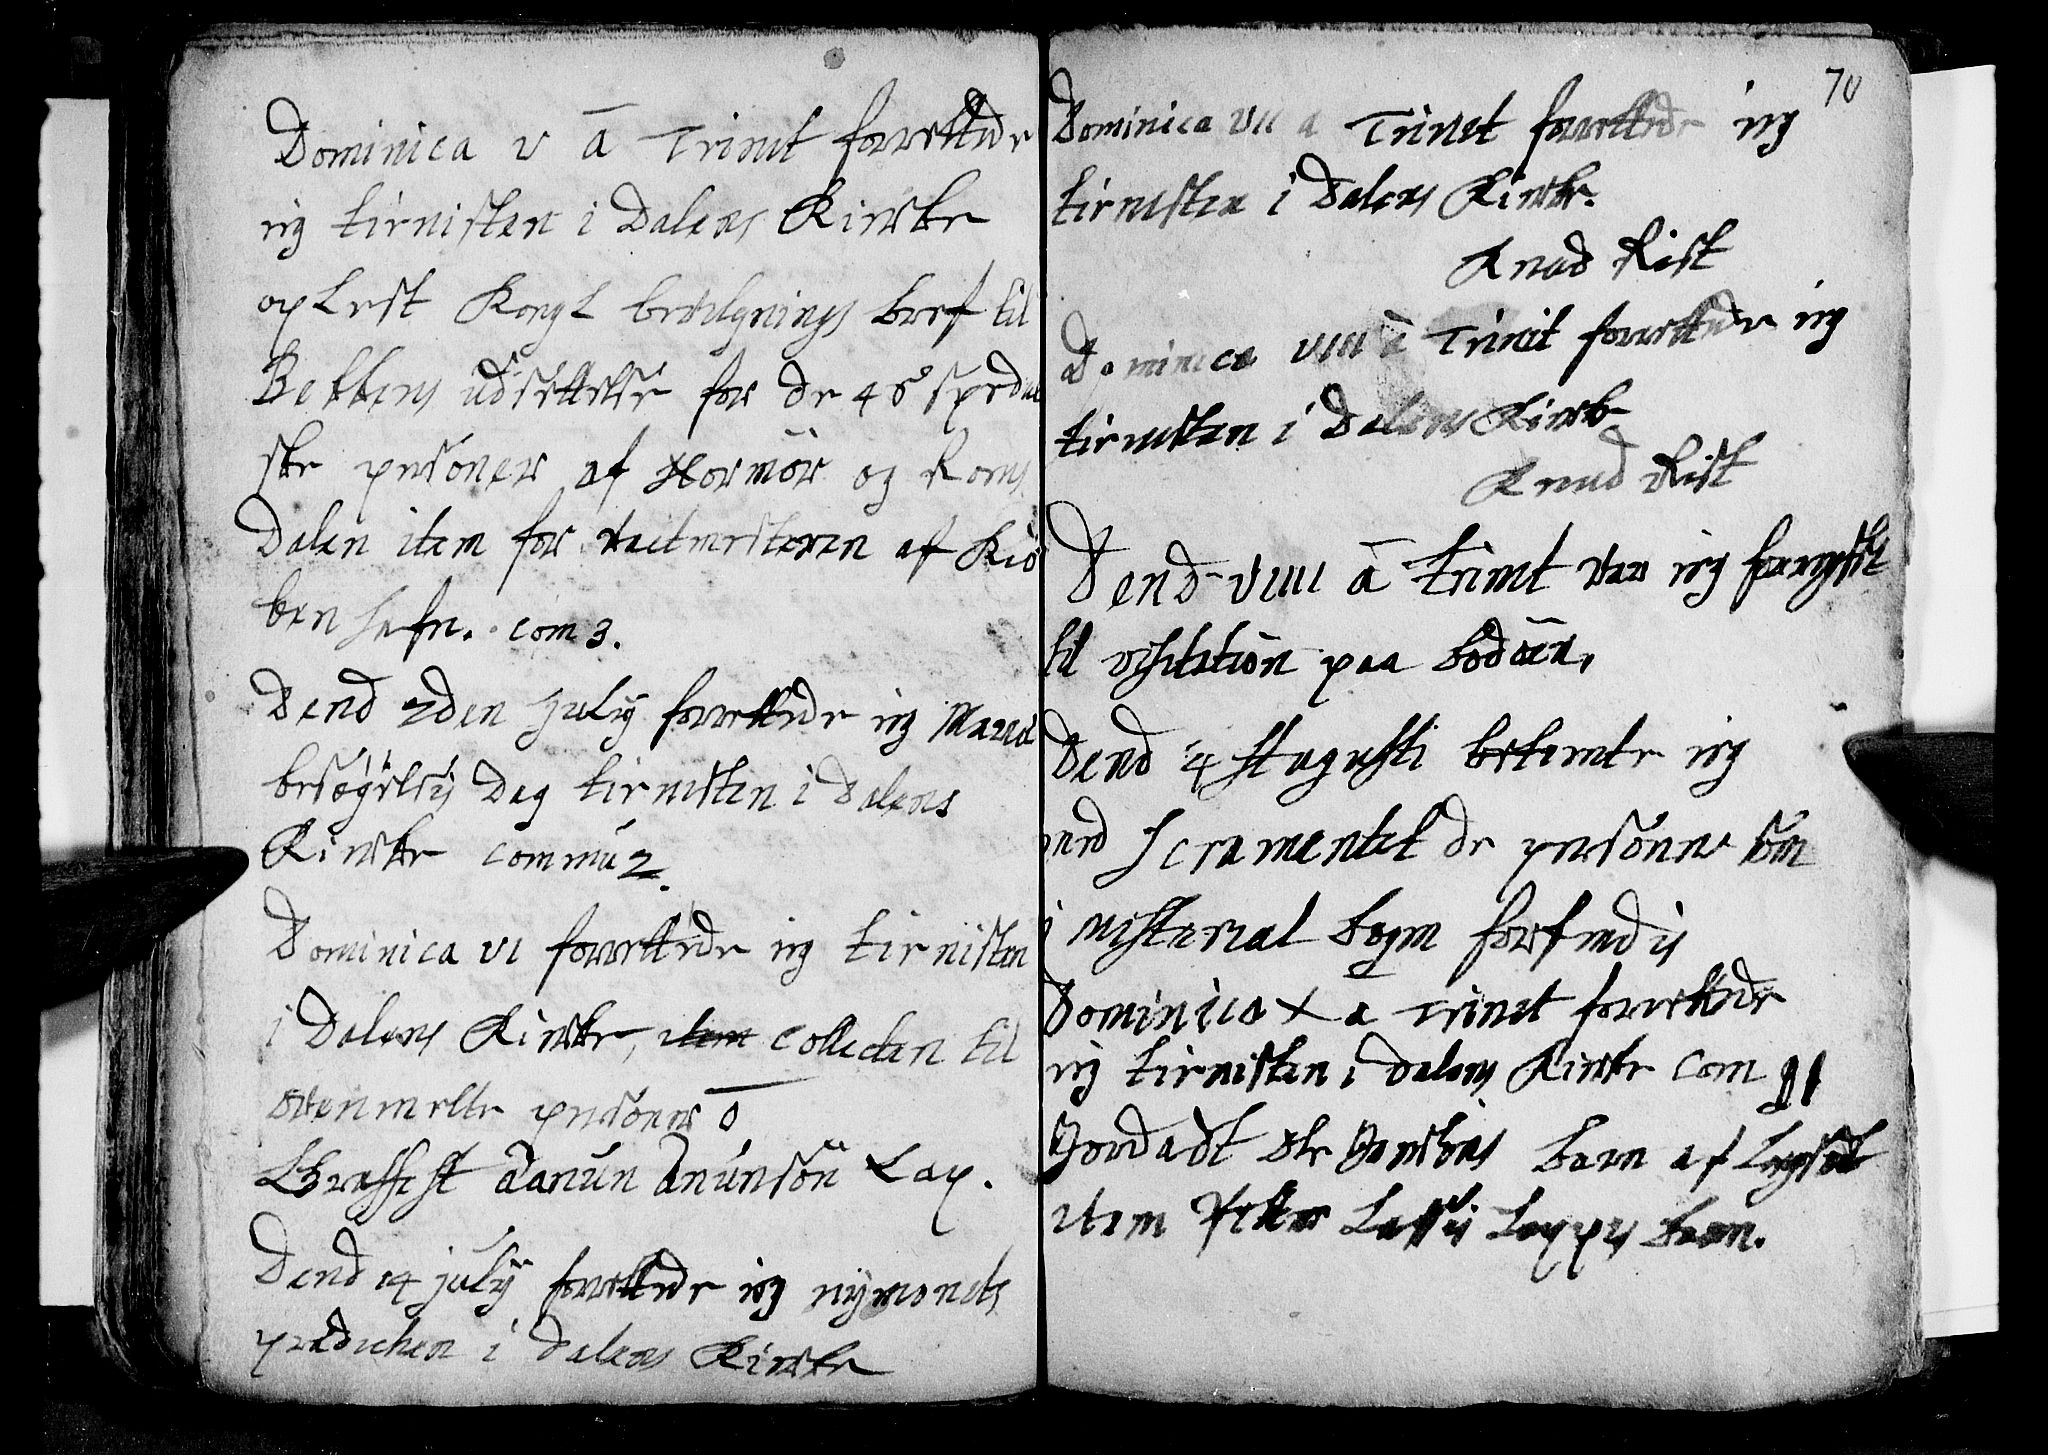 Dominica v ā Trinit forrettede
ieg tienisten i Dalens Kircke
oplest Kongl bevilgnings bref til
Beckens udsettelse for de 46 spedal
ske personer af Normör og Roms
dalen item for veitmesteren af Kiö
ben hafn. com 3.
Dend 2den July forrettede ieg Mariæ
besøgelsis Dag tienisten i Dalens
Kircke commu 2.
Dominica VI forrettede ieg tienisten
i Dalens Kircke, item Collecten til
ovenmelte personer 0
Danun Anunsön Lap.
Dend 14 july forrettede ieg nymonets
prædicken i Dalens Kircke
70
Dominica VII a Trinet forrettede ieg
tienesten i Dalens Kircke.
Knud Rist
Dominica VIII ā Trinit forrettede ieg
tienesten i Dalens Kircke
Knud Rist
Dend VIIII ā Trinit var ieg
til visitation paa Bodöen.
Dend 4 Augusti betiente ieg
med Scramentet de personer som
i misterial bogen forfindis
Dominica X a Trinet forrettede
ieg tienisten i Dalens Kircke Com 11
Jordadt Ole barn af
item Peter Lassis Lappis barn.